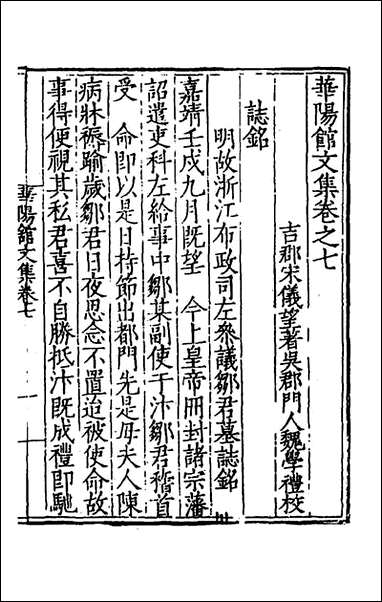 華陽館文集卷之七
吉郡宋儀望著吳郡門人魏學禮校
誌銘
明故浙江布政司左叅議鄒君墓誌銘
嘉靖壬戌九月既望　今上皇帝冊封諸宗藩
詔遣吏科左給事中鄒某副使于汴鄒君稽首
受　命即以是日持節出都門先是母夫人陳
病牀褥踰歲鄒君日夜思念不置迨被使命故
事得便視其私君喜不自勝抵汴既成禮即馳
華陽館文集卷七